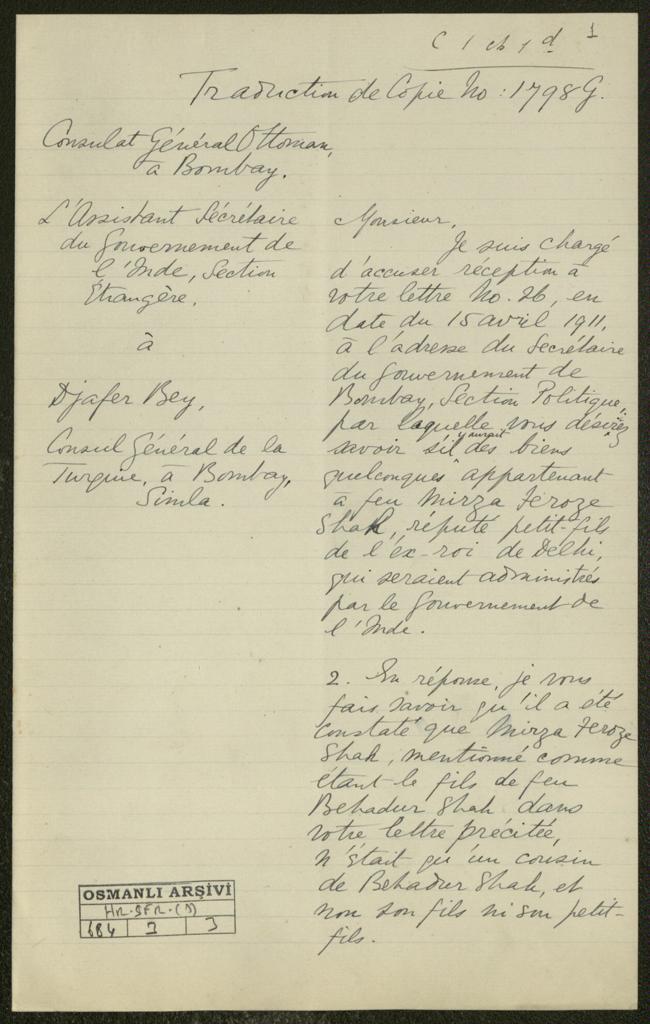 1
Traduction de Copie No: 1798G.
Consulat Général Ottoman,
à Bombay.
L'Assistant Sécrétaire
du Gouvernement de
l'Inde, Section
Étrangère.
à
Djafer Bey,
Consul Général de la
Turquie, à Bombay,
Simla.
Monsieur,
Je suis chargé
d'accuser réception à
votre lettre No. 26, en
date du 15 avril 1911,
à l'adresse du Secrétaire
du Gouvernement de
Bombay, Section Politique,
par laquelle vous désiriez
savoir s'il y aurait des biens
quelconques appartenant
à feu Mirza Feroze
Shah, réputé petit-fils
de l'ex-roi de Delhi,
qui seraient administrés
par le Gouvernement de
l'Inde.
2. En réponse, je vous
fais savoir qu'il a été
constaté que Mirza Feroze
Shah, mentionné comme
étant le fils de feu
Behadur Shah dans
votre lettre précitée,
n'était qu'un cousin
de Behadur Shah, et
non son fils ni son petit-
fils.
OSMANLI ARŞİVİ
HR.SFR.(3)
684 3 3